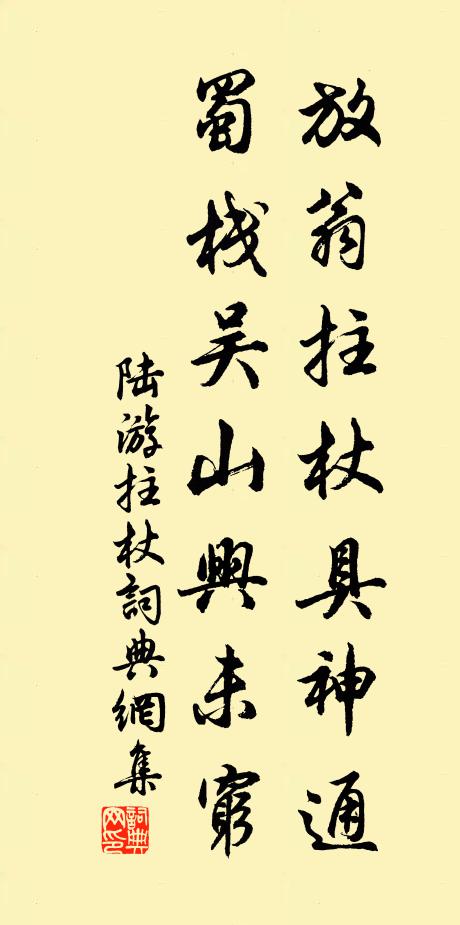 放翁拄杖具神通
蜀栈吴山興未窮
陆游拄杖詞典網集
詞典网印